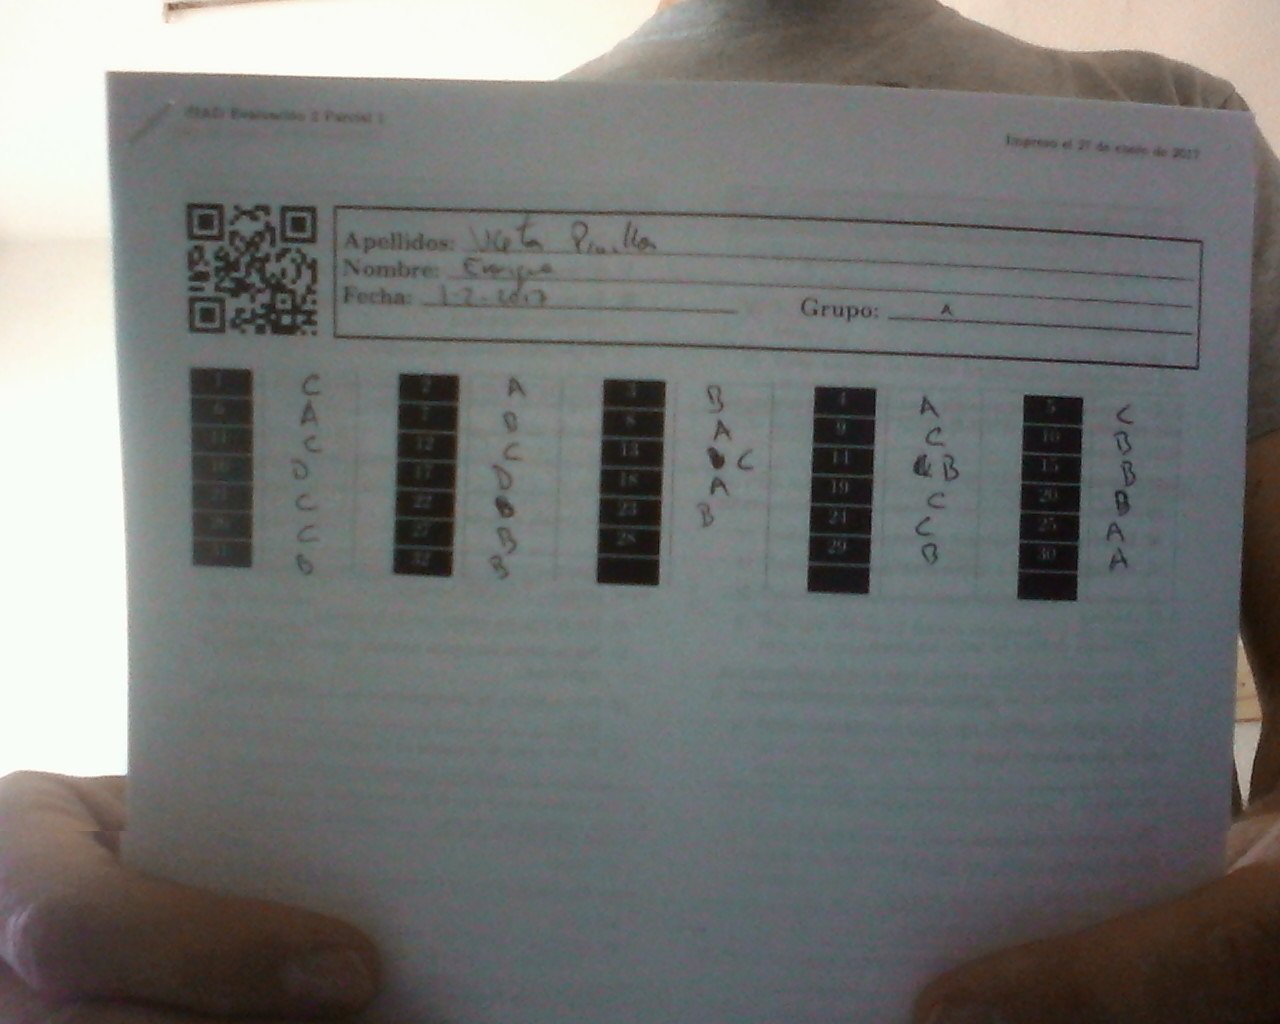 Evaluación 2 Parcial 1
Impreso el 27 de enero de 2017
Apellidos:
Nombre: Enrique
Fecha: 1-2-2017 Grupo: A
1 C 2 A 3 B 4 A 5 C
6 A 7 B 8 A 9 C 10 B
11 C 12 C 13 C 14 B 15 B
16 D 17 D 18 A 19 C 20 B
21 C 22 23 B 24 C 25 A
26 C 27 B 28 29 B 30 A
31 B 32 B